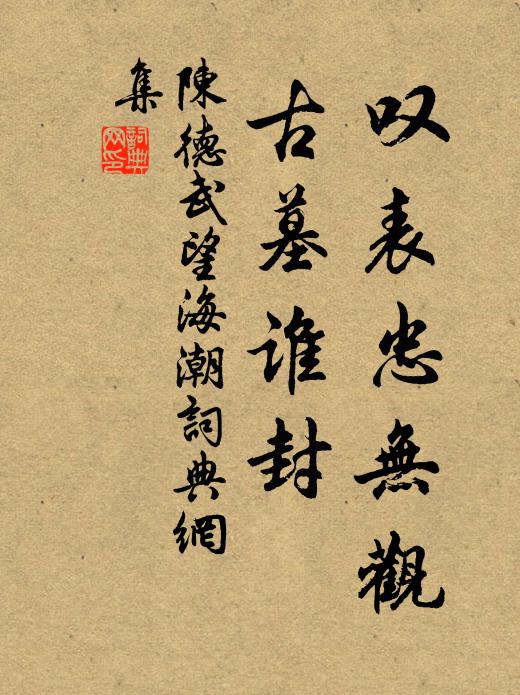 叹表忠無觀
古墓谁封
陳德武望海潮詞典網
集
詞典網印